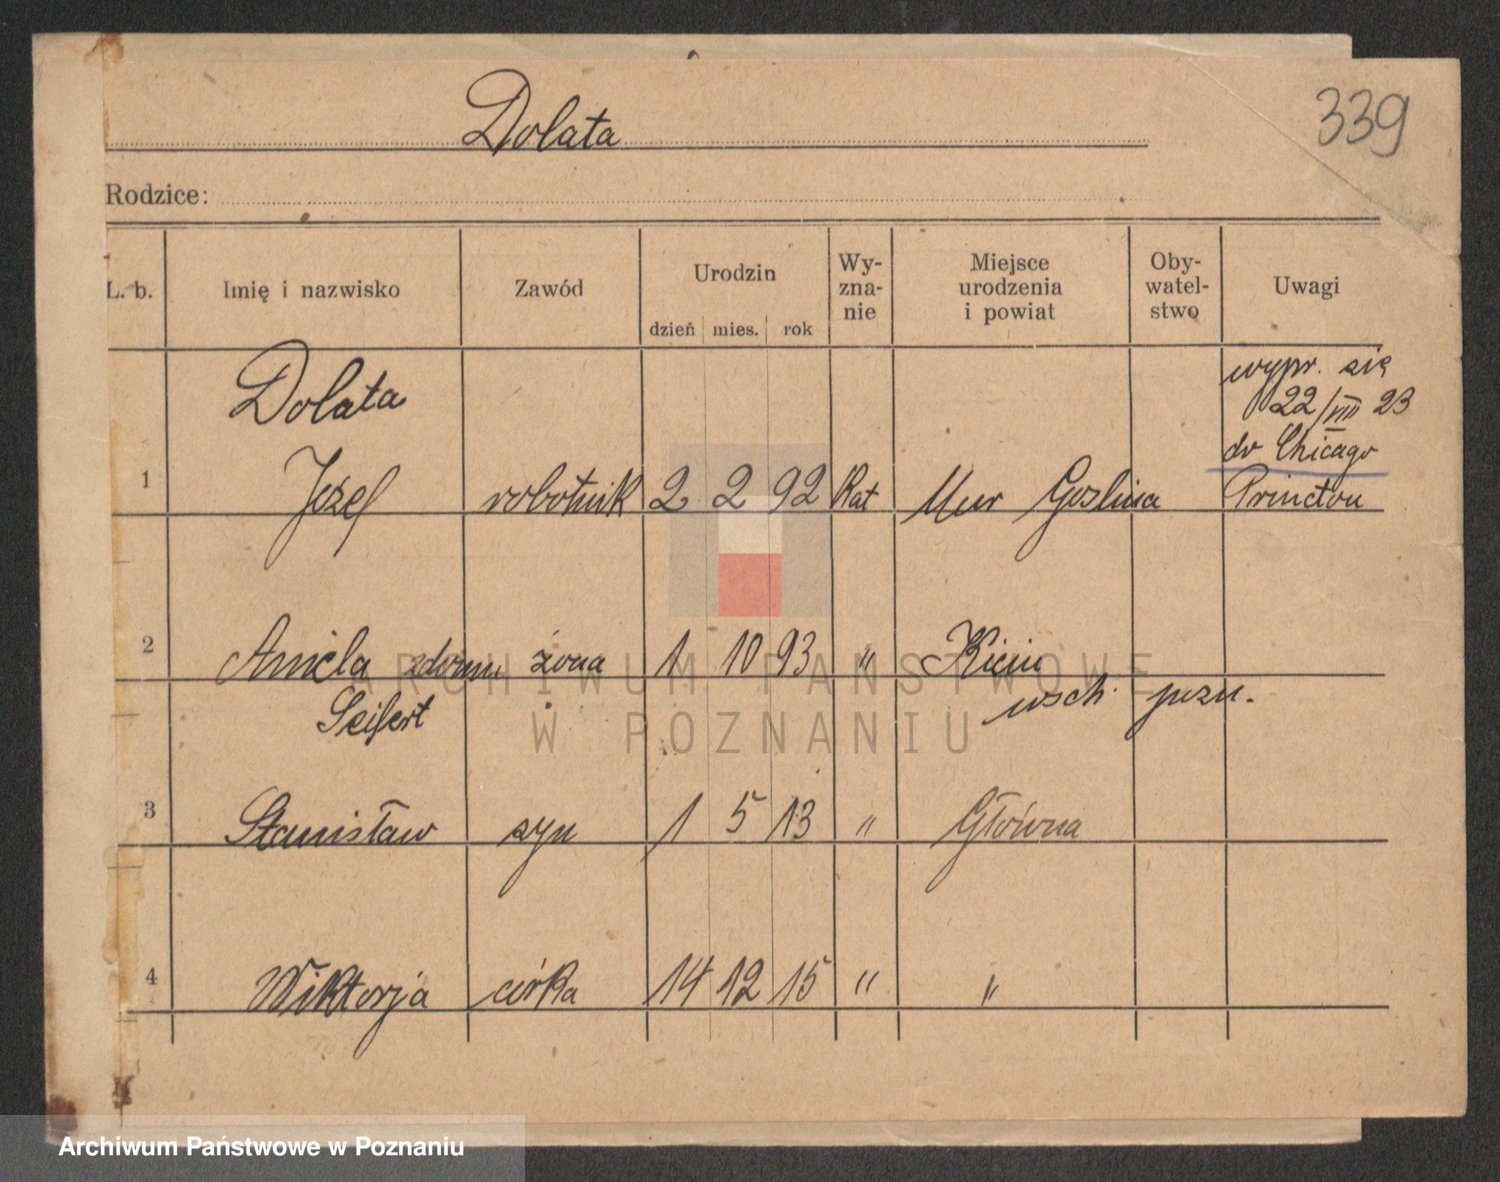 339
Dolata
Rodzice:
L. b. Imię i nazwisko Zawód Urodzin dzień mies. rok Wy-zna-nie Miejsce urodzenia i powiat Oby-watel-stwo Uwagi
Dolata wypr. się
22/VIII 23
do Chicago
1 Józef robotnik 2 2 92 Kat Mur Goslina Princton
2 Aniela zdomu żona 1 10 93 " Kicin
Seifert wsch. pozn.
3 Stanisław syn 1 5 13 " Główna
4 Wiktorja córka 14 12 15 " "
ARCHIWUM PAŃSTWOWE
W POZNANIU
Archiwum Państwowe w Poznaniu